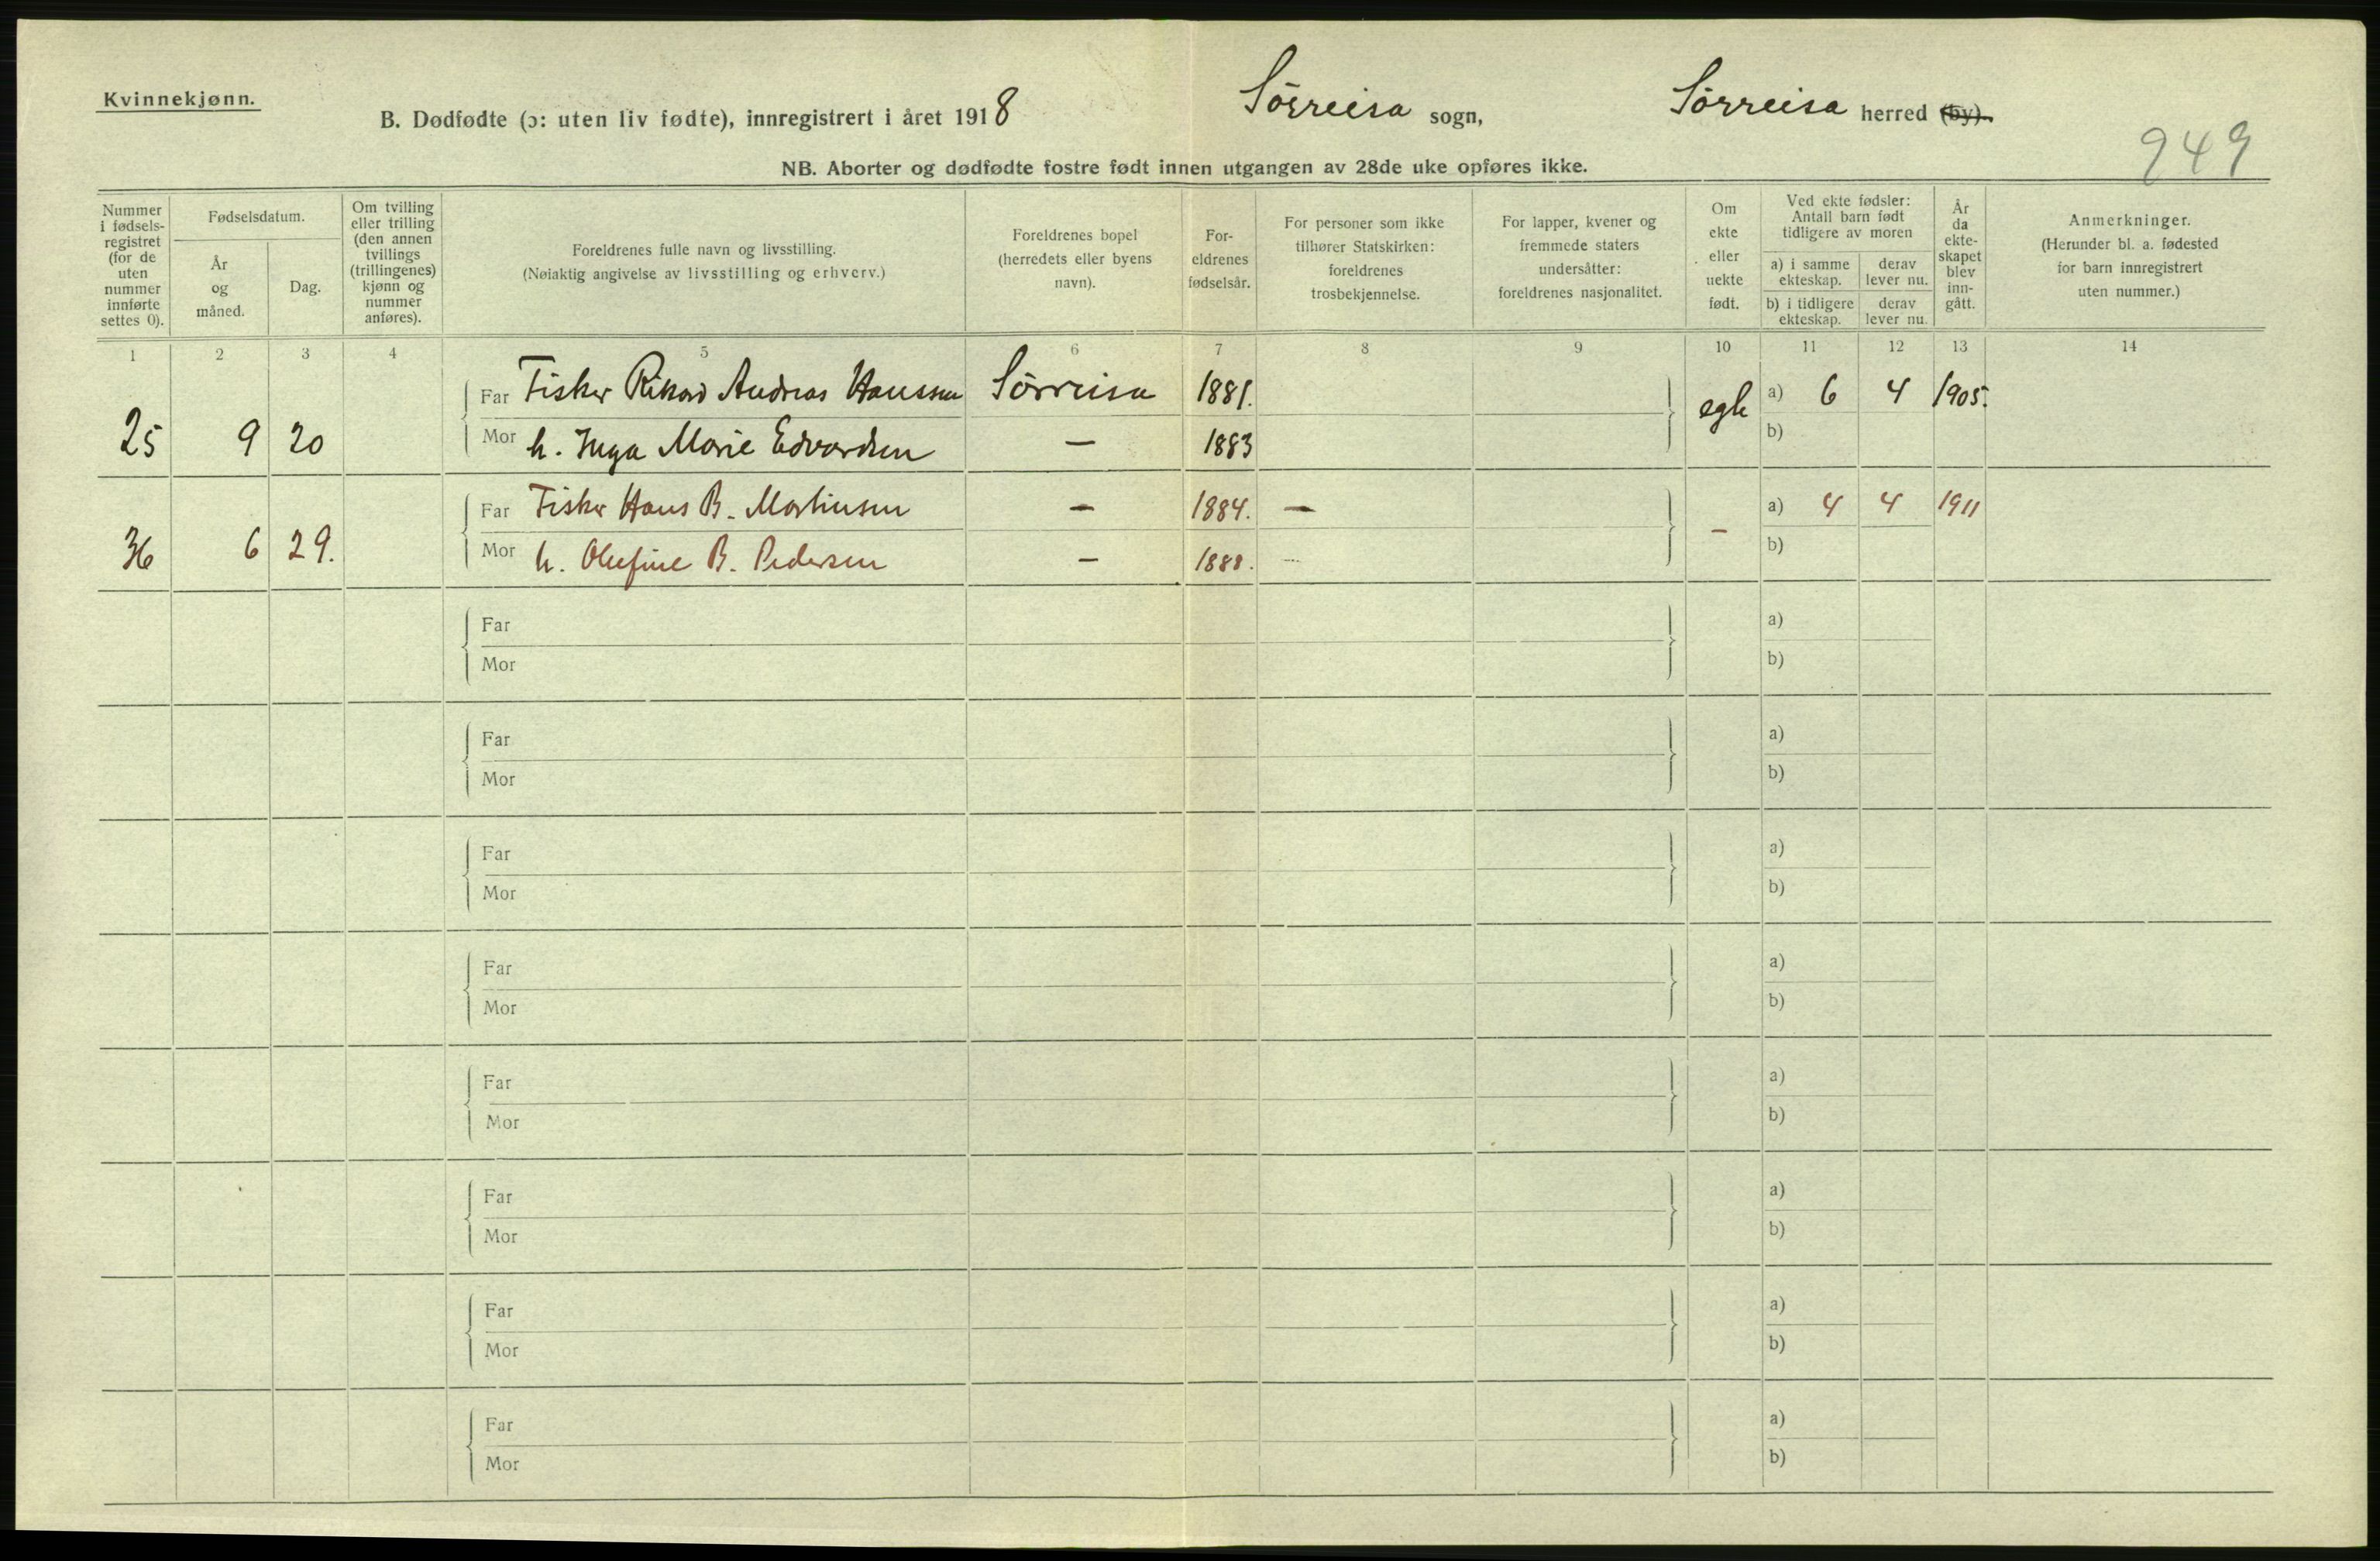 Kvinnekjønn.
B. Dødfødte (ɔ: uten liv fødte), innregistrert i året 1918 Sörreisa sogn, Sörreisa herred (by).
949
NB. Aborter og dødfødte fostre født innen utgangen av 28de uke opføres ikke.
Nummer i fødsels-registret (for de uten nummer innførte settes 0).
Fødselsdatum.
År og måned.
Dag.
Om tvilling eller trilling (den annen tvillings (trillingenes) kjønn og nummer anføres).
Foreldrenes fulle navn og livsstilling.
(Nøiaktig angivelse av livsstilling og erhverv.)
Foreldrenes bopel (herredets eller byens navn).
For-eldrenes fødselsår.
For personer som ikke tilhører Statskirken: foreldrenes trosbekjennelse.
For lapper, kvener og fremmede staters undersåtter: foreldrenes nasjonalitet.
Om ekte eller uekte født.
Ved ekte fødsler: Antall barn født tidligere av moren
a) i samme ekteskap.
derav lever nu.
b) i tidligere ekteskap.
derav lever nu.
År da ekte-skapet blev inn-gått.
Anmerkninger.
(Herunder bl. a. fødested for barn innregistrert uten nummer.)
1 2 3 4 5 6 7 8 9 10 11 12 13 14
Far Fisker Rikard Andreas Hanssen Sörreisa 1881. a) 6 4 1905.
25 9 20 Mor h. Inga Marie Edvardsen — 1883 egte b)
Far Fisker Hans B. Martinsen — 1884. — a) 4 4 1911
36 6 29. Mor h. Olefine B. Pedersen — 1888. — — b)
Far a)
Mor b)
Far a)
Mor b)
Far a)
Mor b)
Far a)
Mor b)
Far a)
Mor b)
Far a)
Mor b)
Far a)
Mor b)
Far a)
Mor b)